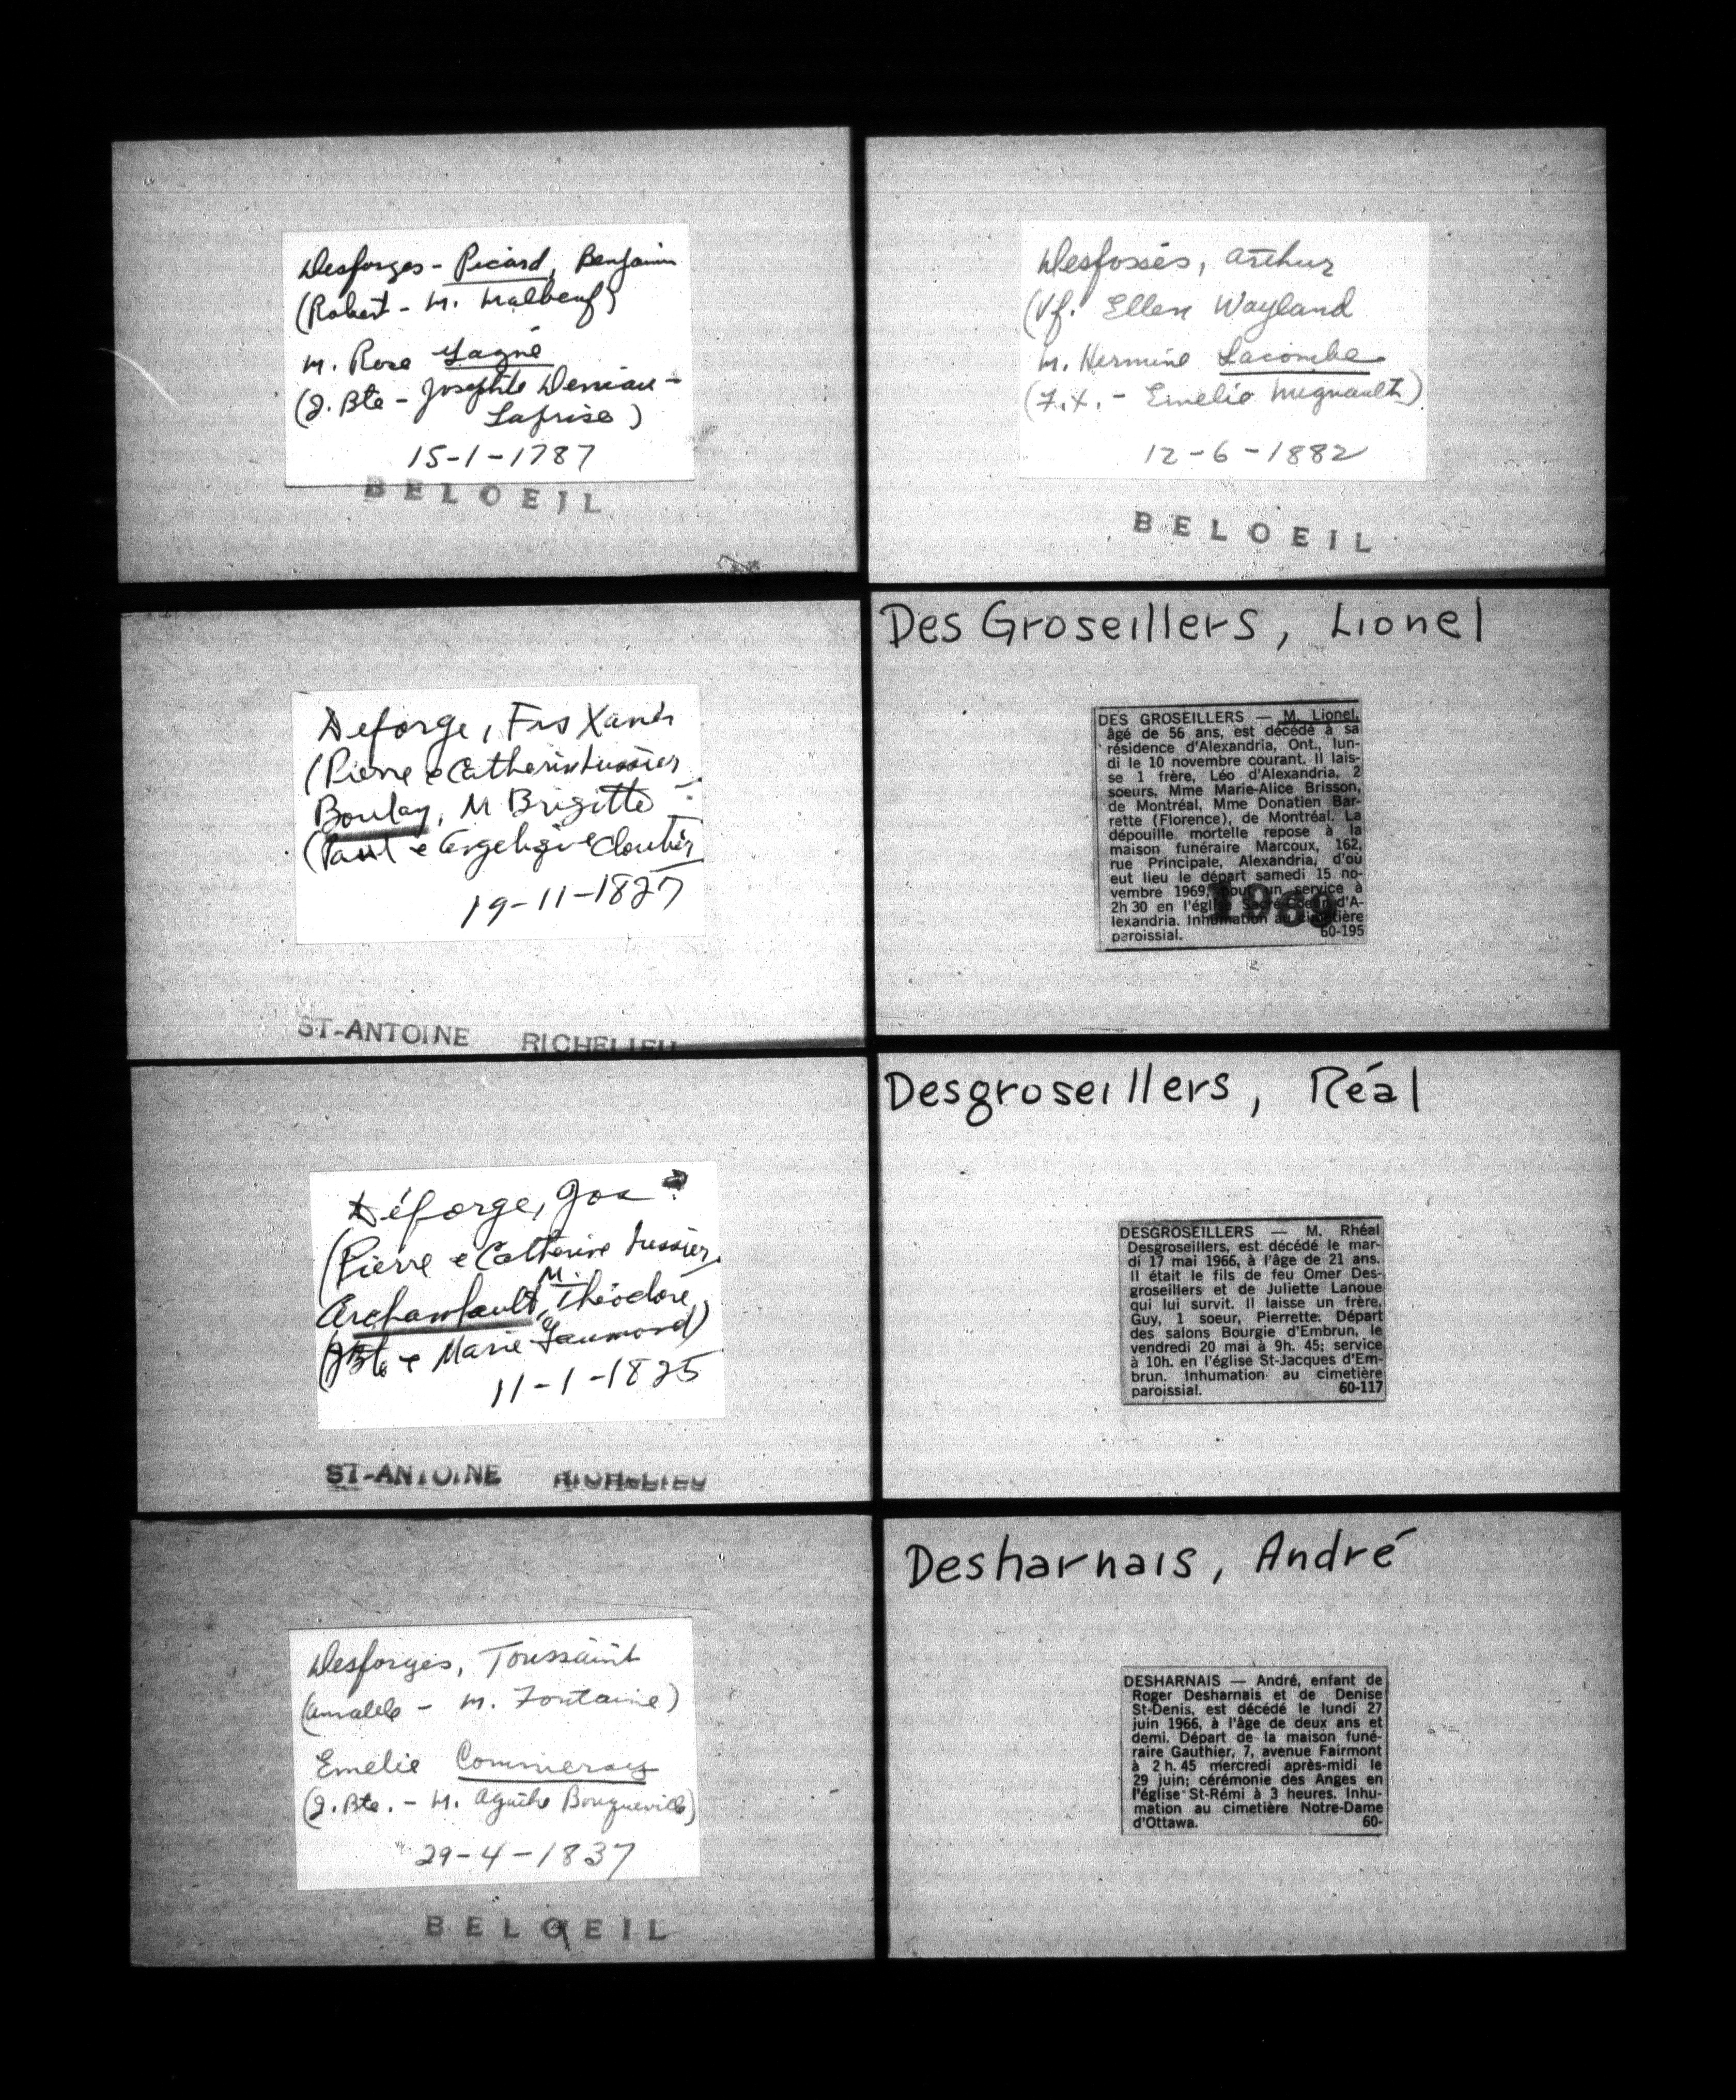 Desforges - Picard, Benjamin
(Robert - M. Malbeuf)
M. Rose Gagné
(J. Bte - Josephte Deniau -
Laprise)
15-1-1787
BELOEIL
Déforge, Frs Xavier
(Pierre e Catherine Lussier
Boulay, M Brigitte
(Paul e Angelique Cloutier
19-11-1827
ST-ANTOINE RICHELIEU
Déforge, Jos
(Pierre e Catherine Lussier
Archambault, M. Théodore,
(JBte e Marie Gaumond)
11-1-1825
ST-ANTOINE RICHELIEU
Desforges, Toussaint
(Amable - M. Fontaine)
Emélie
(J. Bte. - M. Agathe Bougueville)
29-4-1837
BELOEIL
Desfossés, Arthur
(Vf. Ellen Wayland
M. Hermine Lacombe
(F.X. - Emélie Mignault)
12-6-1882
BELOEIL
Des Groseillers, Lionel
DES GROSEILLERS — M. Lionel,
âgé de 56 ans, est décédé à sa
résidence d'Alexandria, Ont., lun-
di le 10 novembre courant. Il lais-
se 1 frère, Léo d'Alexandria, 2
soeurs, Mme Marie-Alice Brisson,
de Montréal, Mme Donatien Bar-
rette (Florence), de Montréal. La
dépouille mortelle repose à la
maison funéraire Marcoux, 162,
rue Principale, Alexandria, d'où
eut lieu le départ samedi 15 no-
vembre 1969, pour un service à
2h 30 en l'église Sacré-Coeur d'A-
lexandria. Inhumation au cimetière
paroissial. 60-195
1969
Desgroseillers, Réal
DESGROSEILLERS — M. Rhéal
Desgroseillers, est décédé le mar-
di 17 mai 1966, à l'âge de 21 ans.
Il était le fils de feu Omer Des-
groseillers et de Juliette Lanoue
qui lui survit. Il laisse un frère,
Guy, 1 soeur, Pierrette. Départ
des salons Bourgie d'Embrun, le
vendredi 20 mai à 9h. 45; service
à 10h. en l'église St-Jacques d'Em-
brun. Inhumation au cimetière
paroissial. 60-117
Desharnais, André
DESHARNAIS — André, enfant de
Roger Desharnais et de Denise
St-Denis, est décédé le lundi 27
juin 1966, à l'âge de deux ans et
demi. Départ de la maison funé-
raire Gauthier, 7, avenue Fairmont
à 2 h. 45 mercredi après-midi le
29 juin; cérémonie des Anges en
l'église St-Rémi à 3 heures. Inhu-
mation au cimetière Notre-Dame
d'Ottawa. 60-